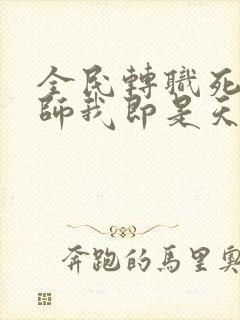 全民轉職死
師我即是天
奔跑的馬里奧